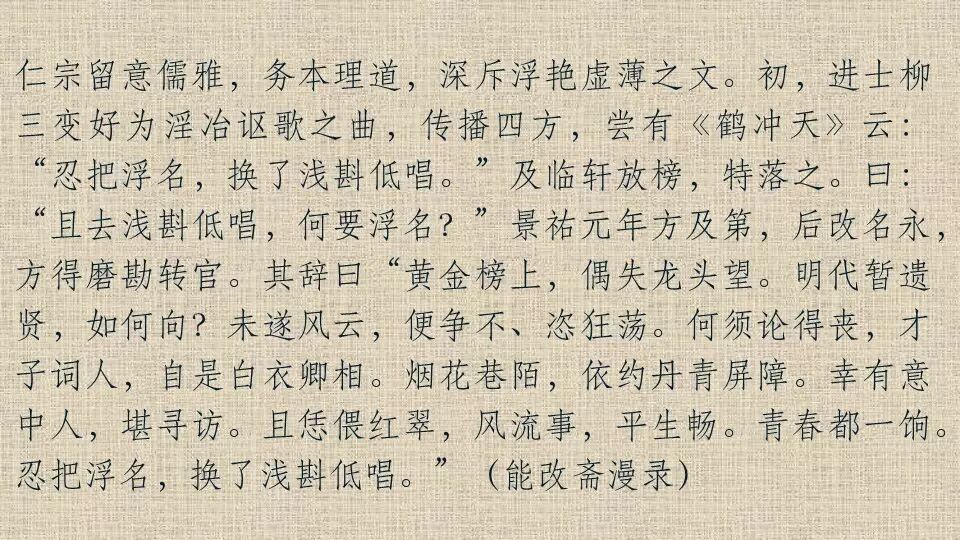 仁宗留意儒雅，务本理道，深斥浮艳虚薄之文。初，进士柳
三变好为淫冶讴歌之曲，传播四方，尝有《鹤冲天》云：
“忍把浮名，换了浅斟低唱。”及临轩放榜，特落之。曰：
“且去浅斟低唱，何要浮名？”景祐元年方及第，后改名永，
方得磨勘转官。其辞曰“黄金榜上，偶失龙头望。明代暂遗
贤，如何向？未遂风云，便争不、恣狂荡。何须论得丧，才
子词人，自是白衣卿相。烟花巷陌，依约丹青屏障。幸有意
中人，堪寻访。且恁偎红翠，风流事，平生畅。青春都一饷。
忍把浮名，换了浅斟低唱。”（能改斋漫录）